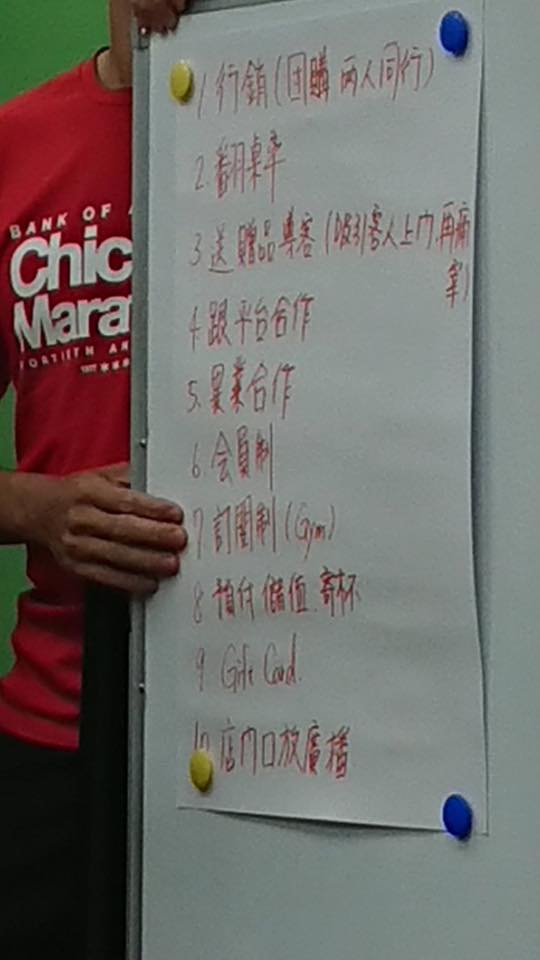 BANK OF A
Chic
Mara
FORTIETH AN
1977
1 行銷(团購 両人同行)
2.翻桌率
3.送贈品專客(吸引客人上門,再痛
宰)
4.跟平台合作
5.異業合作
6.会員制
7.訂閱制(Gym)
8.預付儲值.寄杯
9 Gift Card.
10店門口放廣播